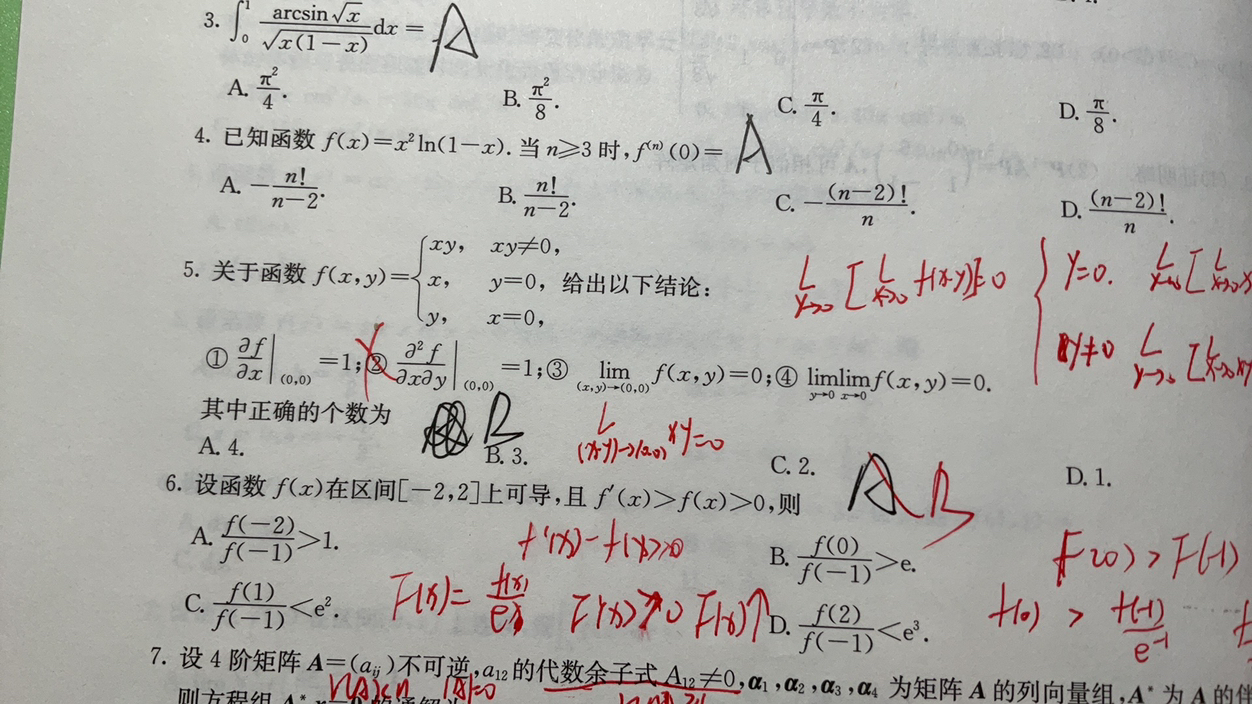 3. ∫₀¹ arcsin√x / √(x(1−x)) dx = A
A. π²/4. B. π²/8. C. π/4. D. π/8.
4. 已知函数 f(x)=x²ln(1−x). 当 n≥3 时, f⁽ⁿ⁾(0)= A
A. −n!/(n−2). B. n!/(n−2). C. −(n−2)!/n. D. (n−2)!/n.
5. 关于函数 f(x,y)={xy, xy≠0, x, y=0, y, x=0, 给出以下结论:
L y→0 [L x→0 f(x,y)]=0 { y=0.
y≠0
① ∂f/∂x|(0,0) =1;② ∂²f/∂x∂y|(0,0) =1;③ lim (x,y)→(0,0) f(x,y)=0;④ lim y→0 lim x→0 f(x,y)=0.
其中正确的个数为 B
L (x,y)→(0,0) xy=0
A. 4. B. 3. C. 2. D. 1.
6. 设函数 f(x)在区间[−2,2]上可导,且 f′(x)>f(x)>0,则 A B
A. f(−2)/f(−1)>1. B. f(0)/f(−1)>e.
f′(x)−f(x)>0
F(0)>F(−1)
C. f(1)/f(−1)<e². D. f(2)/f(−1)<e³.
F(x)= f(x)/eˣ F′(x)>0 F(x)↑
f(0) > f(−1)/e⁻¹
7. 设 4 阶矩阵 A=(aᵢⱼ)不可逆,a₁₂的代数余子式 A₁₂≠0,α₁,α₂,α₃,α₄ 为矩阵 A 的列向量组,A* 为 A 的伴
r(A)<n |A|=0
则方程组 A*x=0 的通解为